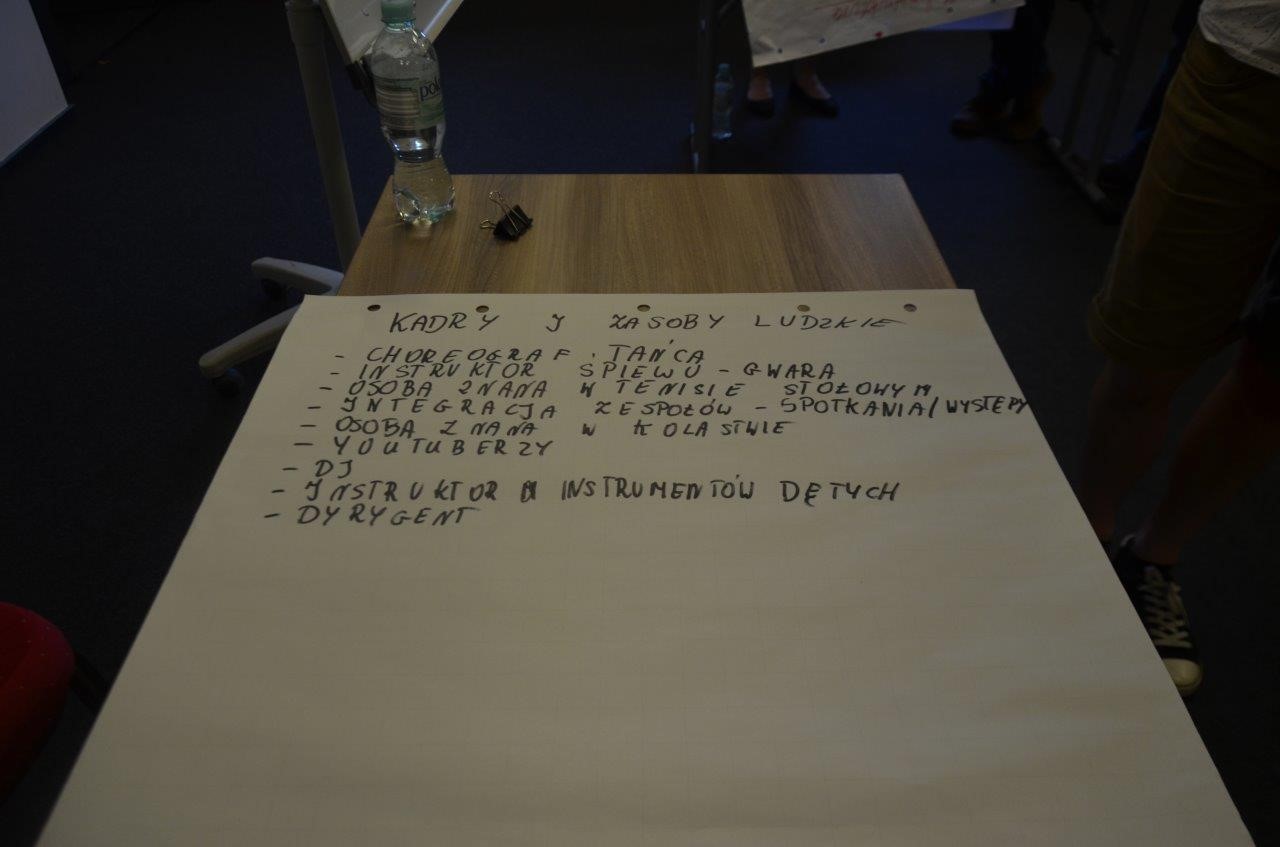 KADRY I ZASOBY LUDZKIE
- CHOREOGRAF. TAŃCA
- INSTRUKTOR ŚPIEWU - GWARA
- OSOBA ZNANA W TENISIE STOŁOWYM
- INTEGRACJA ZESPOŁÓW - SPOTKANIA/WYSTĘPY
- OSOBA ZNANA W KOLASTWIE
- YOUTUBERZY
- DJ
- INSTRUKTOR INSTRUMENTÓW DĘTYCH
- DYRYGENT